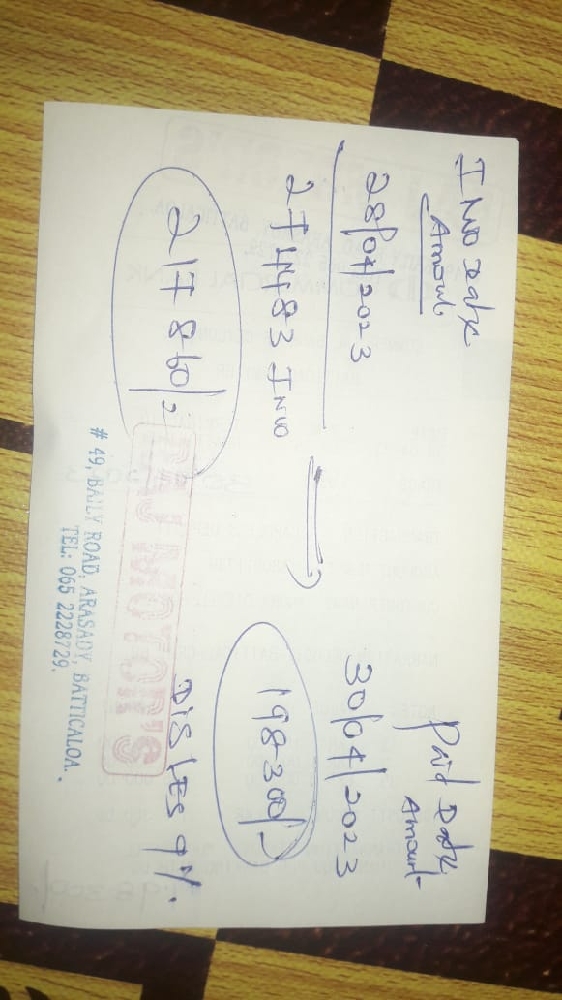 INO Date
Amount
28/04/2023
274483 INO
217860/=
Paid Date
Amount
30/04/2023
198300/=
DIS LES 9%
MOTORS
# 49, BAILY ROAD, ARASADY, BATTICALOA.
TEL: 065 2228729.